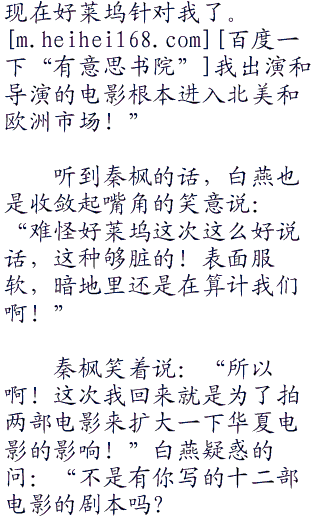 现在好莱坞针对我了。
[m.heihei168.com][百度一
下“有意思书院”]我出演和
导演的电影根本进入北美和
欧洲市场！”
听到秦枫的话，白燕也
是收敛起嘴角的笑意说：
“难怪好莱坞这次这么好说
话，这种够脏的！表面服
软，暗地里还是在算计我们
啊！”
秦枫笑着说：“所以
啊！这次我回来就是为了拍
两部电影来扩大一下华夏电
影的影响！”白燕疑惑的
问：“不是有你写的十二部
电影的剧本吗？